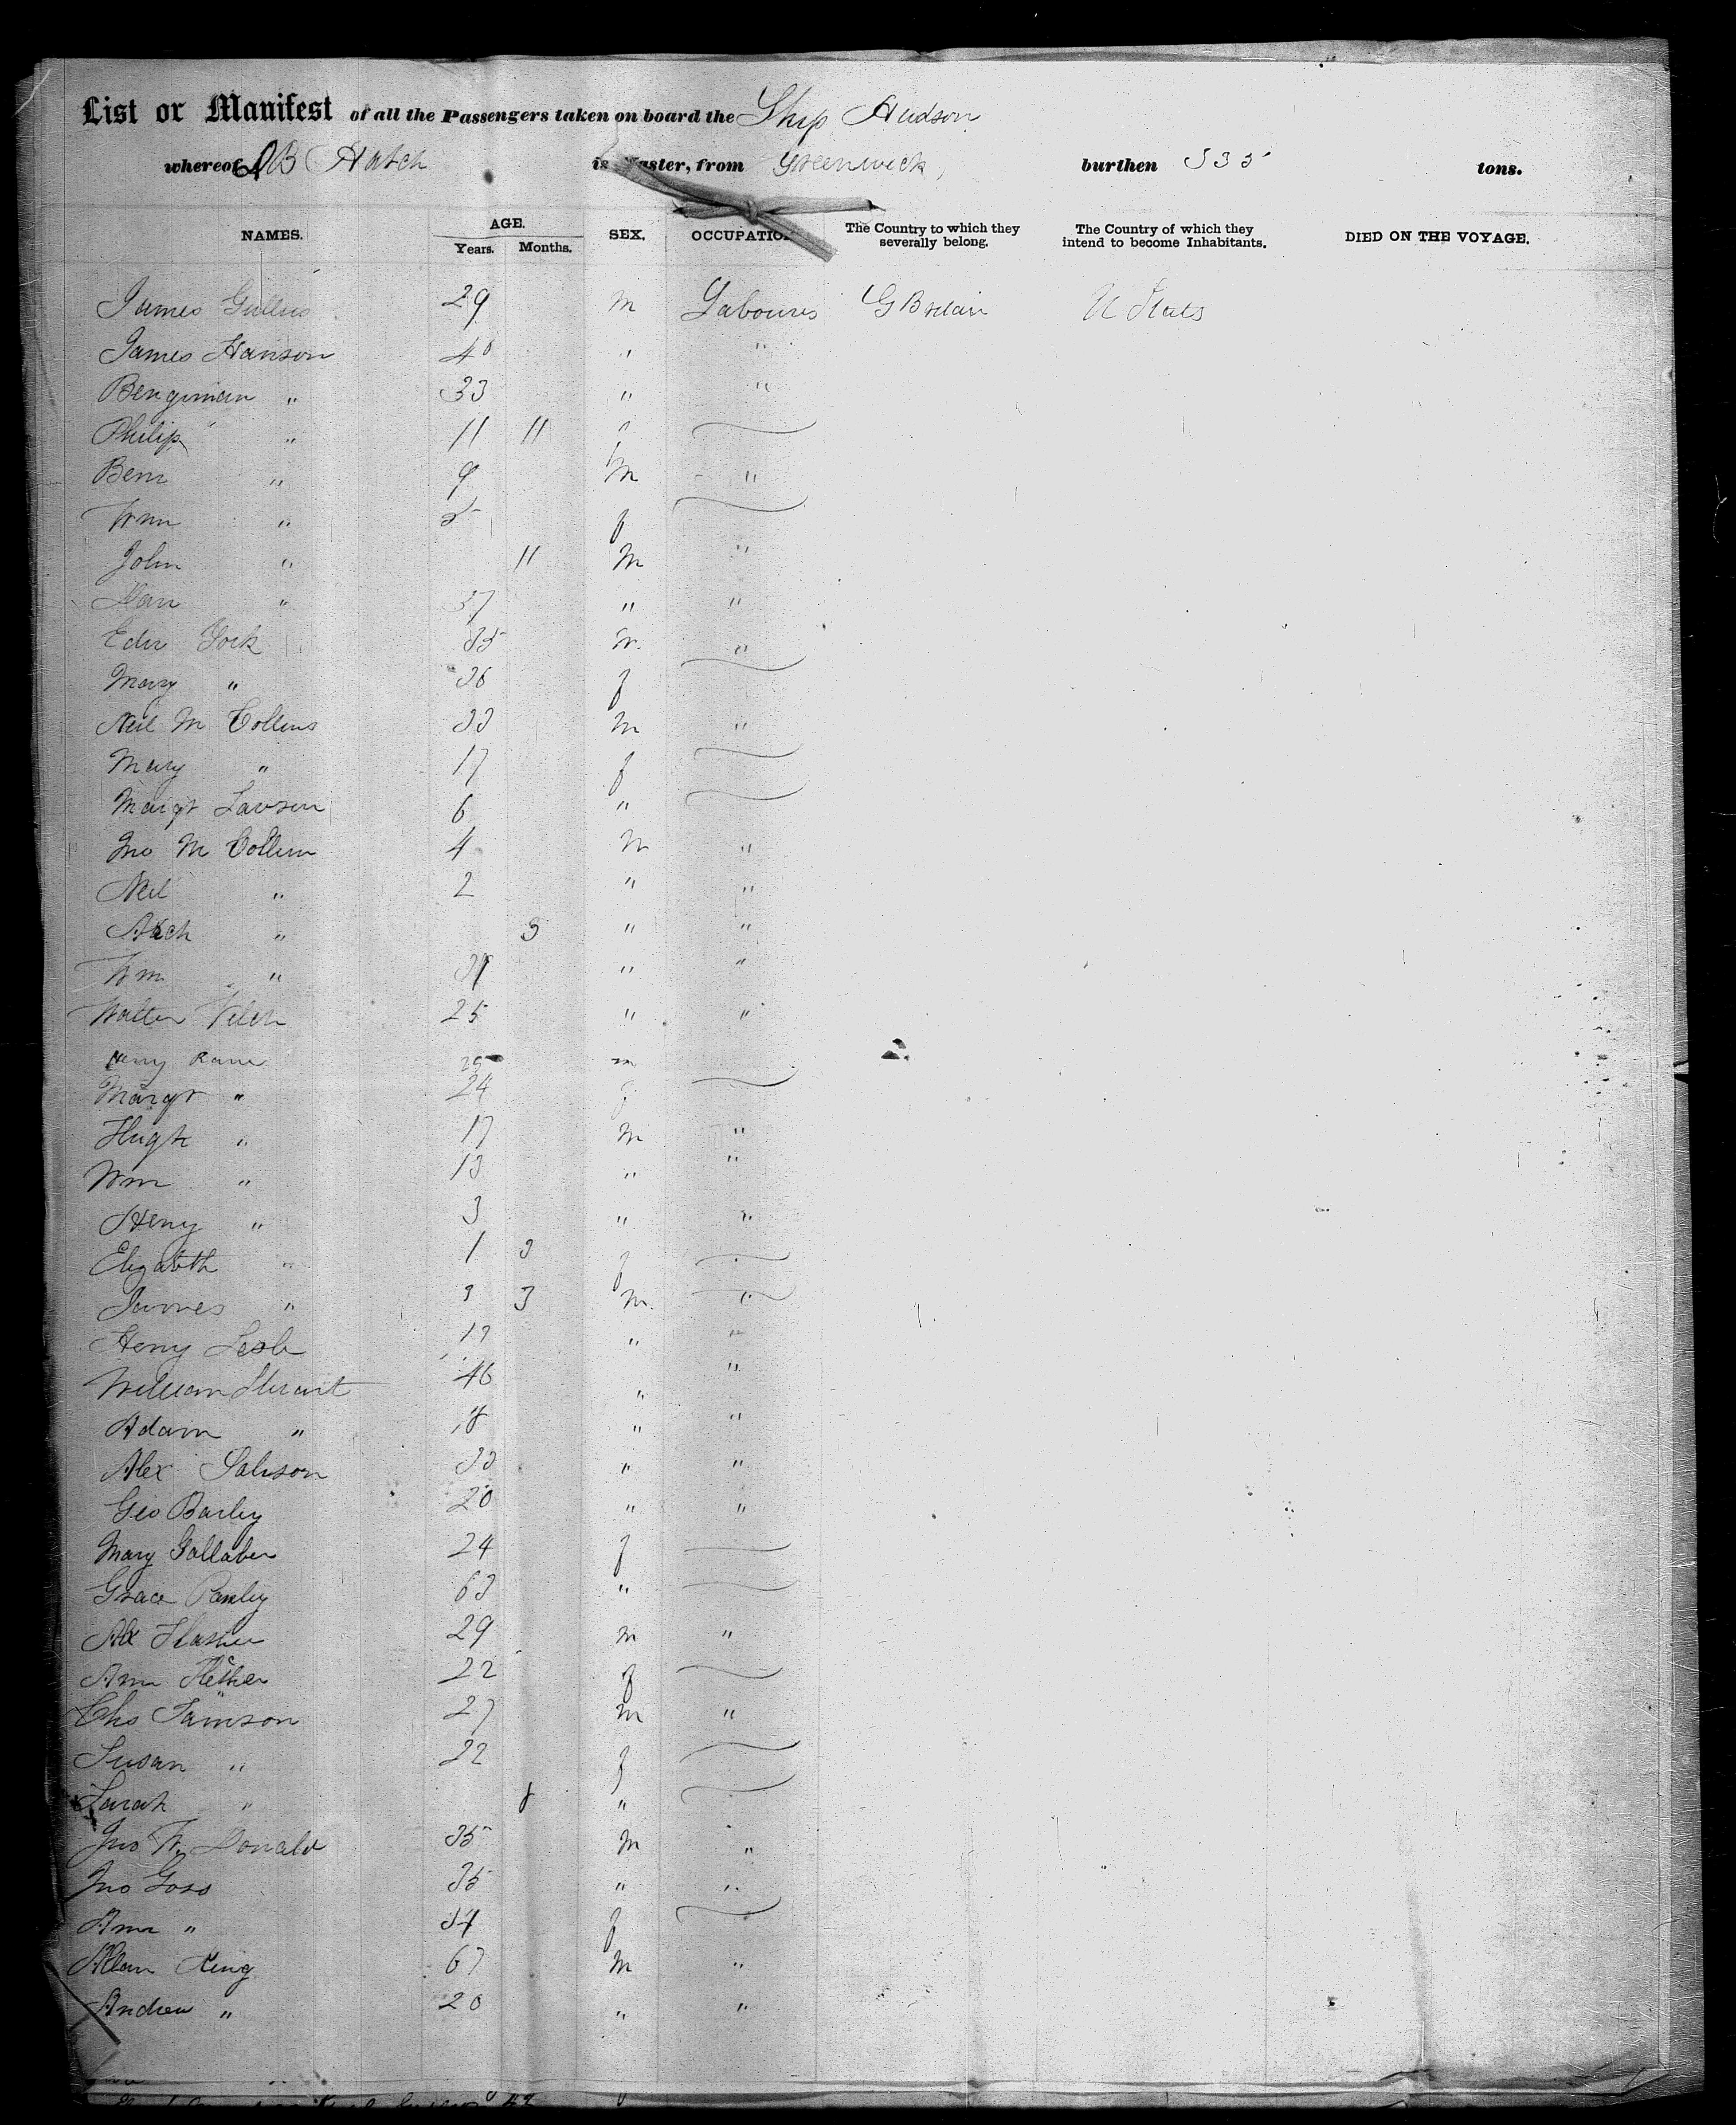 List or Manifest of all the Passengers taken on board the Ship Hudson
whereof B Hatch is Master, from Greenwick, burthen 535 tons.
NAMES. AGE. Years. Months. SEX. OCCUPATION The Country to which they severally belong. The Country of which they intend to become Inhabitants. DIED ON THE VOYAGE.
James 29 m Labourer G Britain U States
James Hanson 40 " "
Bengiman " 33 " "
Philip " 11 11 "
Benj " 9 m "
Wm " f
John " 11 m "
Dan " 37 " "
Edw York 35 m "
Mary " 36 f
Neil M Collins 33 m "
Mary " 17 f
Margt Lawson 6 "
Jno M Collum 4 m "
Neil " 2 " "
Arch " 3 " "
Wm " " "
Walter 25 " "
m
Margt " 24 f
Hugh " 17 m "
Wm " 13 " "
Heny " 3 " "
Elizabeth " 1 3 f
James " 3 3 m "
Heny 17 " "
William Stuart 46 " "
Adam " 18 " "
Alex 33 " "
Geo Barley 20 " "
Mary Gallaher 24 f
Grace 63 "
Alx 29 m "
Ann 22 f
Chs 27 m "
Susan " 22 f
Sarah " 8 "
Jno Donald 35 m "
Jno Goss 35 " "
Ann " 34 f
Allan King 67 m "
Andrew " 20 " "